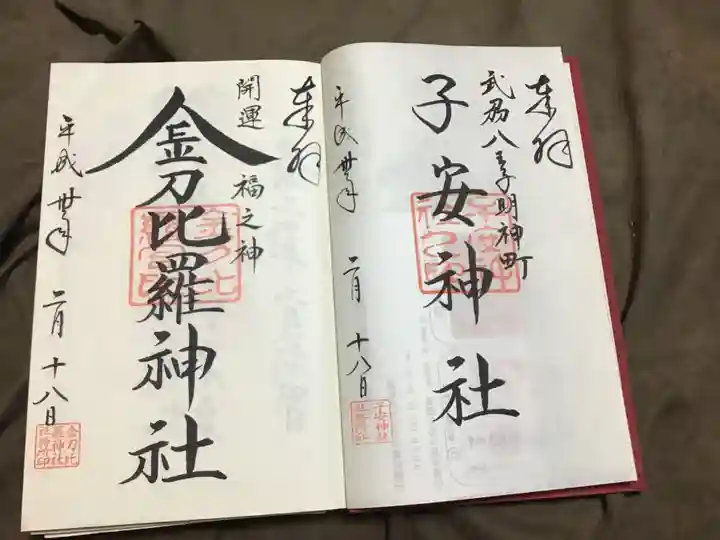 奉拝
武州八王子明神町
子安神社
平成卅年 二月十八日
子安神社
社務所印
奉拝
開運 福之神
金刀比羅神社
平成卅年 二月十八日
金刀比
羅神社
社務所印